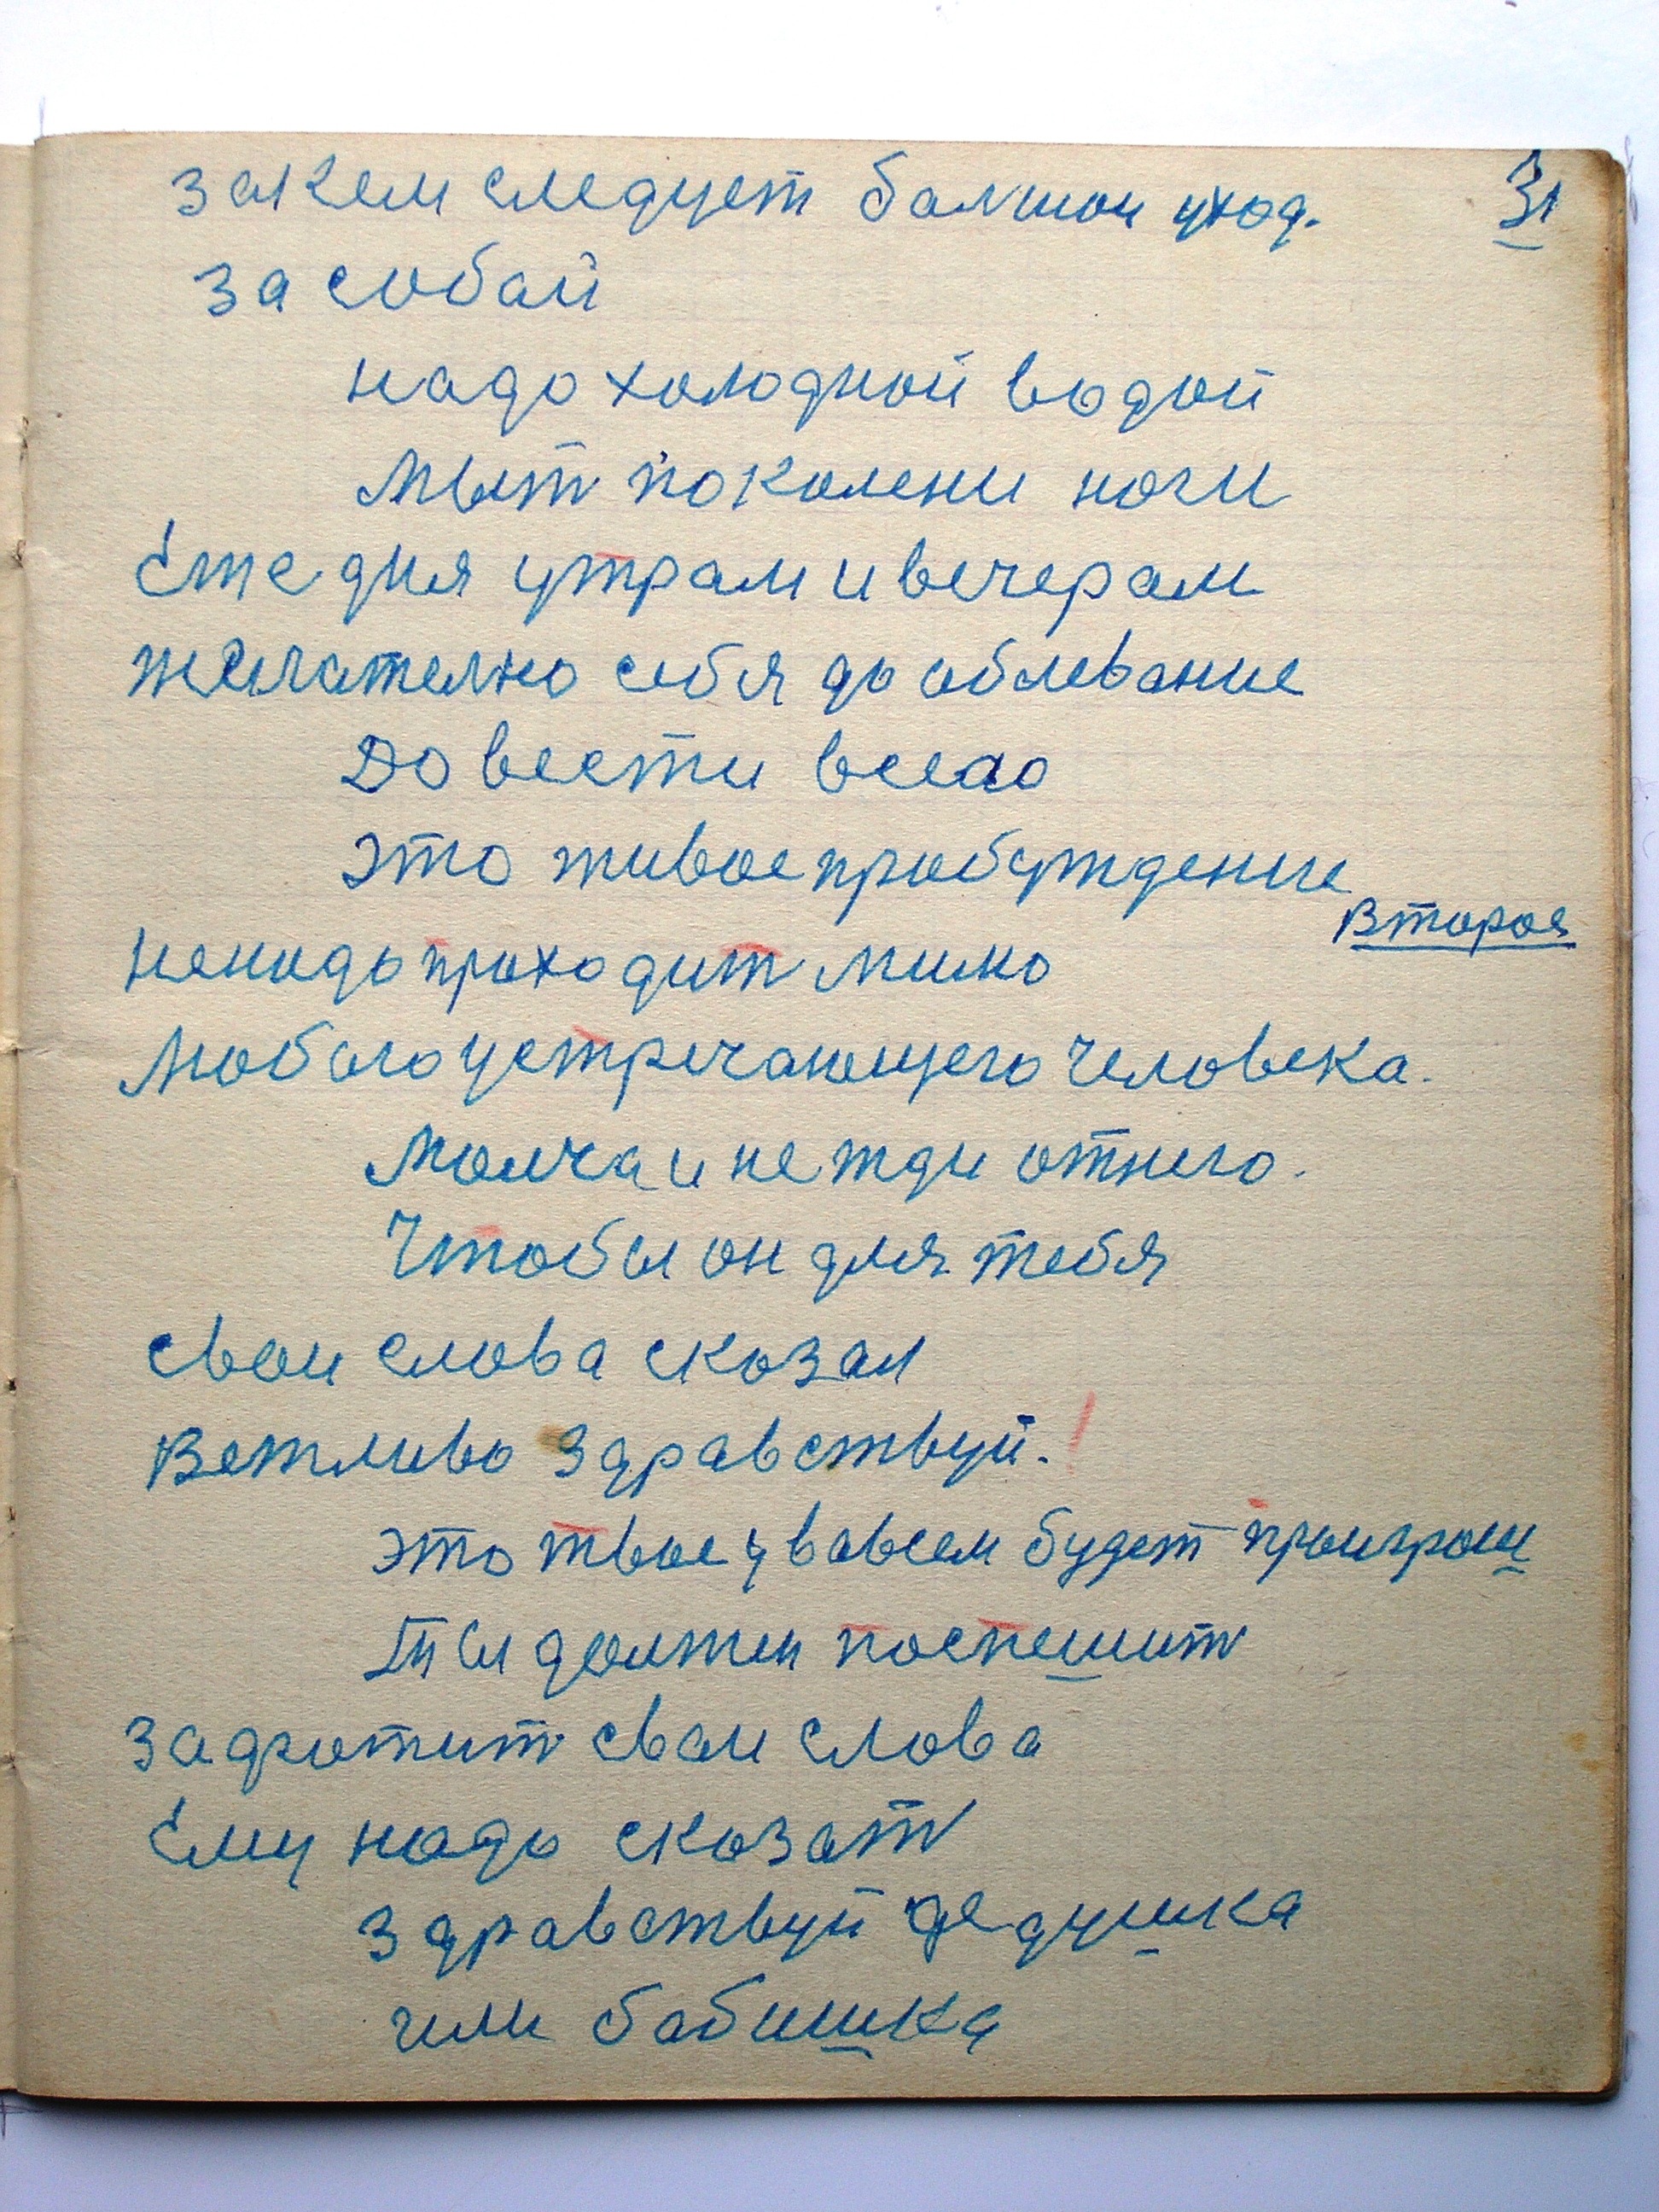 31
за кем следует балшои уход.
за собай
надо холодной водой
мыт по колени ноги
Еже дня утрам и вечерам
желателно себя до облевание
Довести всего
это живое пробуждение
Второя
ненадо проходит мимо
Любого устречающего человека.
Молча и не жди от него.
Чтобы он для тебя
свои слова сказал
Вежливо здравствуй.
это твое у во всем будет проигрыш
Ты должен поспешит
свои слова
Ему надо сказат
здравствуй дедушка
или бабушка